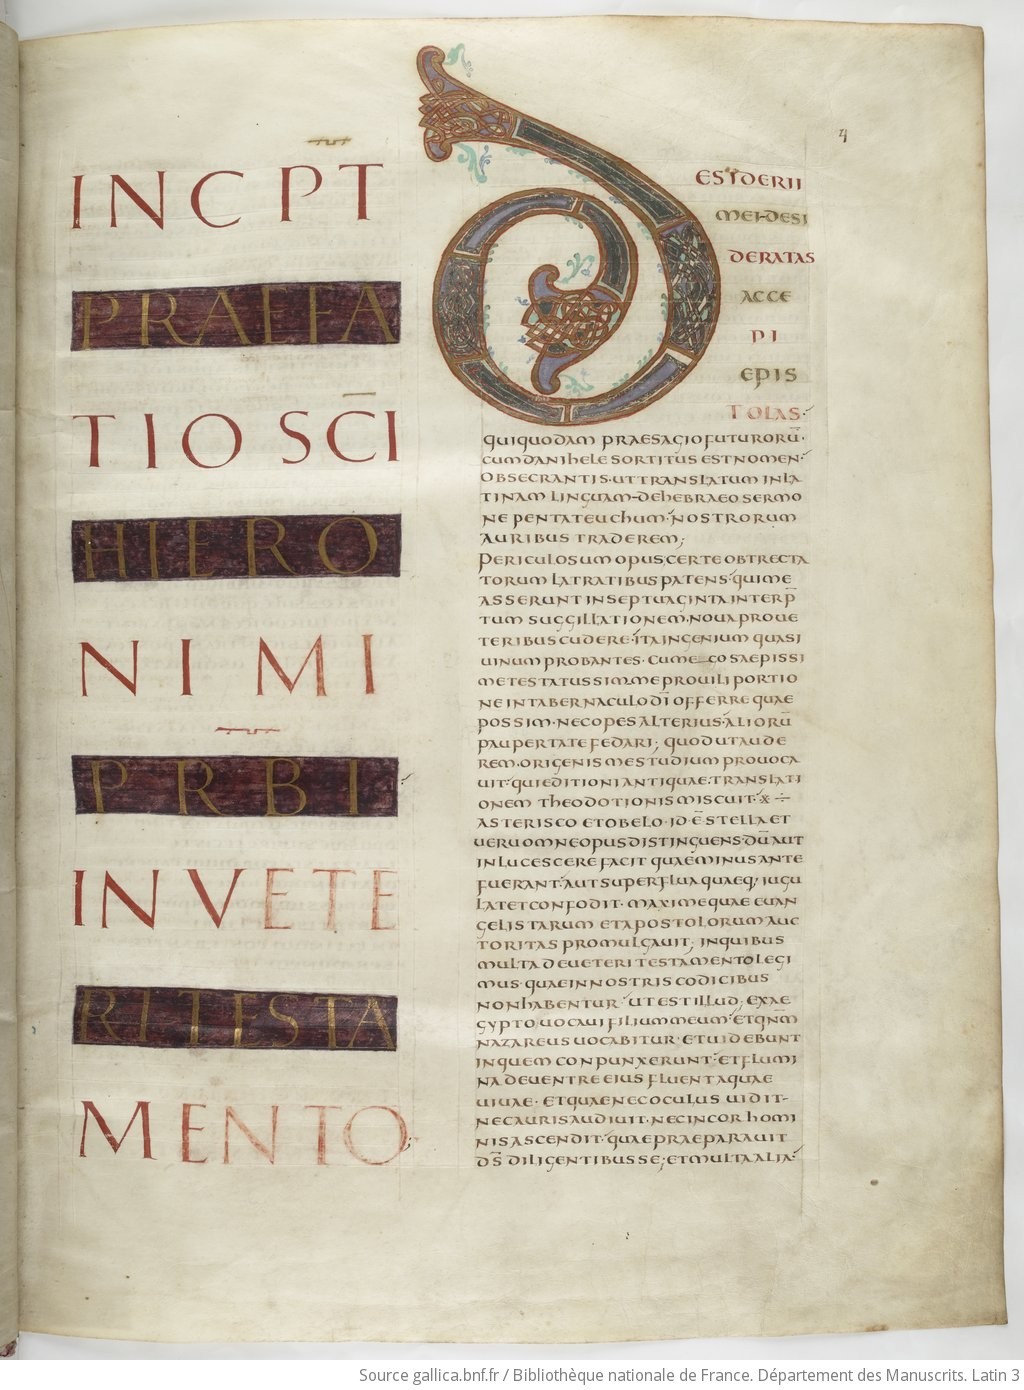 INCPT
PRAEFA
TIO SCI
HIERO
NI MI
PRBI
IN VETE
RI TESTA
MENTO
4
DESIDERII
MEI·DESI
DERATAS
ACCE
PI
EPIS
TOLAS·
QUIQUODAM PRAESAGIO FUTURORŪ·
CUM DANIHELE SORTITUS EST NOMEN·
OBSECRANTIS·UT TRANSLATUM IN LA
TINAM LINGUAM–DE HEBRAEO SERMO
NE PENTATEUCHUM·NOSTRORUM
AURIBUS TRADEREM;
PERICULOSUM OPUS CERTE OBTRECTA
TORUM LATRATIBUS PATENS·QUI ME
ASSERUNT IN SEPTUAGINTA INTERP̄
TUM SUGGILLATIONEM·NOVA PRO VE
TERIBUS CUDERE·ITA INGENIUM QUASI
UINUM PROBANTES·CUM EGO SAEPISSI
ME TESTATUS SIM·ME PRO UILI PORTIO
NE IN TABERNACULO DĪ OFFERRE QUAE
POSSIM·NEC OPES ALTERIUS·ALIORŪ
PAUPERTATE FEDARI; QUOD UT AUDE
REM·ORIGENIS ME STUDIUM PROVOCA
UIT·QUI EDITIONI ANTIQUAE·TRANSLATI
ONEM THEODOTIONIS MISCUIT·※ ÷
ASTERISCO ET OBELO·ID·Ē·STELLA ET
UERU OMNE OPUS DISTINGUENS·DŪ AUT
INLUCESCERE FACIT QUAE MINUS ANTE
FUERANT·AUT SUPERFLUA QUAEQ; IUGU
LAT ET CONFODIT·MAXIME QUAE EUAN
GELISTARUM ET APOSTOLORUM AUC
TORITAS PROMULGAUIT; IN QUIBUS
MULTA DE UETERI TESTAMENTO LEGI
MUS·QUAE IN NOSTRIS CODICIBUS
NON HABENTUR·UT EST ILLUD; EX AE
GYPTO UOCAUI FILIUM MEUM·ET QNM̄
NAZAREUS UOCABITUR·ET UIDEBUNT
IN QUEM CONPUNXERUNT·ET FLUMI
NA DE UENTRE EIUS FLUENT AQUAE
UIUAE·ET QUAE NEC OCULUS UIDIT–
NEC AURIS AUDIUIT·NEC IN COR HOMI
NIS ASCENDIT·QUAE PRAEPARAUIT
D̄S DILIGENTIBUS SE; ET MULTA ALIA·
Source gallica.bnf.fr / Bibliothèque nationale de France. Département des Manuscrits. Latin 3